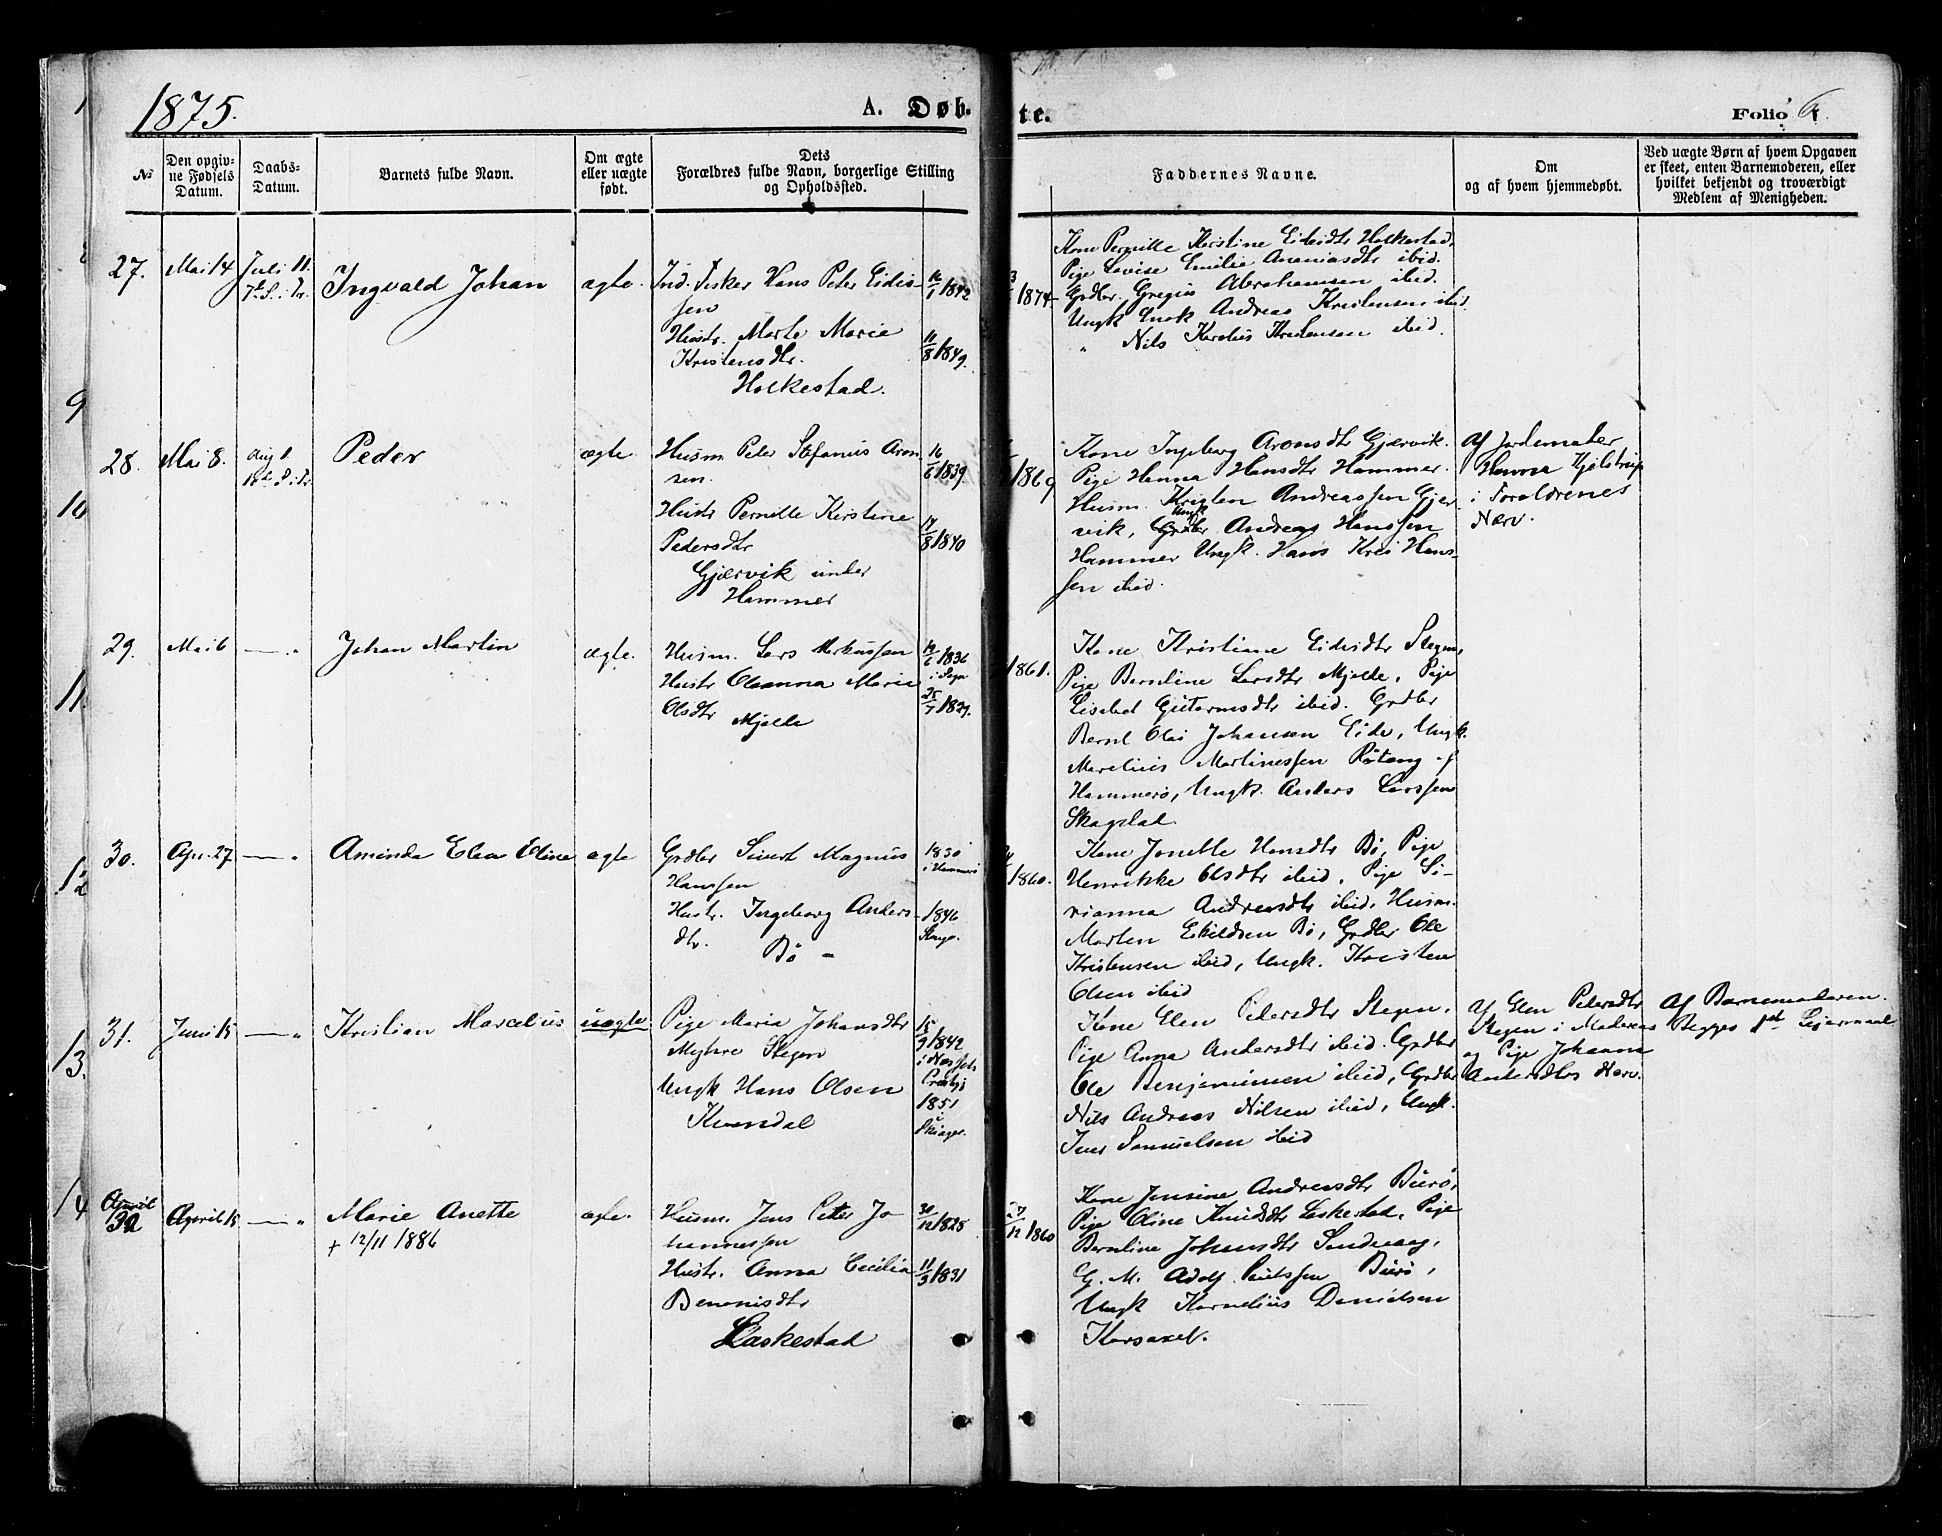 1875.
A. Døb-
te.
Folio 6
No
Den opgiv-
ne Fødsels
Datum.
Daabs-
Datum.
Barnets fulde Navn.
Om ægte
eller uægte
født.
Dets
Forældres fulde Navn, borgerlige Stilling
og Opholdssted.
Faddernes Navne.
Om
og af hvem hjemmedøbt.
Ved uægte Børn af hvem Opgaven
er skeet, enten Barnemoderen, eller
hvilket bekjendt og troværdigt
Medlem af Menigheden.
27.
Mai 14
Juli 11.
7de S. i Tr.
Ingvald Johan
ægte.
Ind. Fisker Hans Peter Eidis-
sen
Hustr. Marte Marie
Kristensdtr.
Holkestad.
1842
11/8 1849.
1874
Kone Pernille Kerstine Eidisdtr Holkestad,
Pige Lovise Emilie Ananiasdtr ibid.
Grdbr. Gregius Abrahamsen ibid.
Ungk Enok Andreas Kristensen ibid.
" Nils Karelius Kristensen ibid.
28.
Mai 8.
Aug 1.
10de S. i Tr.
Peder
ægte.
Husm Peter Stefanus Aron-
sen.
Hustr Pernille Kerstine
Pedersdtr
Gjærvik under
Hammer
16/6 1839.
17/8 1840
1869
Kone Ingeborg Aronsdtr Gjærvik.
Pige Hanna Hansdtr Hammer.
Husm. Kristen Andreassen Gjær-
Ungk
vik, Grdbr Andreas Hanssen
Hammer Ungk. Hans Kris Hans-
sen ibid.
Af Jordemoder
Hanna Kjelstrup
i Forældrenes
Nærv.
29.
Mai 6
— "
Johan Martin
ægte.
Husm. Lars Markussen
Hustr Oleanna Marie
Olsdtr Mjelde
1836
25/7 1829.
1861.
Kone Kristiane Eidisdtr Stegen,
Pige Berntine Larsdtr Mjelde, Pige
Lisebet Gutormsdtr ibid. Grdbr
Bernt Olai Johansen Eide, Ungk.
Marelius Martinessen Røtang af
Hammerø, Ungk. Anders Larssen
Skagstad.
30.
Apr. 27
— "
Aminda Elea Oline
ægte
Grdbr Sivert Magnus
Hanssen
Hustr. Ingeborg Anders-
dtr. Bø
1830
i Hammerø
1846
1860.
Kone Jonette Hansdtr Bø, Pige
Henrikke Olsdtr ibid, Pige Si-
vianna Andreasdtr ibid, Husm.
Morten Eskildsen Bø, Grdbr Ole
Kristensen ibid, Ungk. Kristen
Olsen ibid
31.
Juni 15
— "
Kristian Marcelius
uægte
Pige Maria Johansdtr
Myhre Stegen
Ungk Hans Olsen
Kvandal
15/9 1842
1851
i
Kone Elen Pedersdtr Stegen,
Pige Anna Andersdtr ibid. Grdbr
Ole Benjaminsen ibid, Grdbr
Nils Andreas Nilsen ibid, Ungk.
Iver Samuelsen ibid
Af Elen Pedersdtr
Stegen i Moderens
og Pige Johanna
Andersdtrs Nærv.
Af Barnemoderen.
Begges 1st Leiermaal
April
32
April 15
— "
Marie Anette
+ 12/11 1886
ægte.
Husm. Jens Peter Jo-
hannessen
Hustr. Anna Cecilia
Benonisdtr
Laskestad
30/12 1828
11/3 1831
27/12 1860
Kone Jensine Andreasdtr Buerø,
Pige Oline Knudsdtr Leskestad, Pige
Berntine Johansdtr Sandvaag,
G. M. Adolf Paulssen Buerø,
Ungk Kornelius Danielsen
Korsaxel.
9
10
11.
12
13.
14